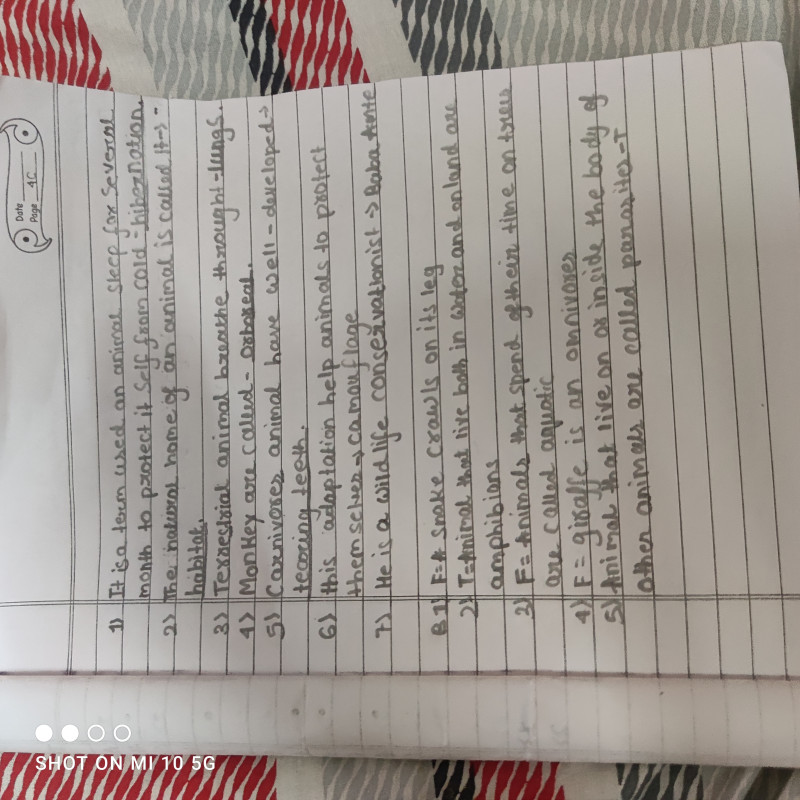 Date
Page 4C
1) It is a term used an animal sleep for several
month to protect it self from cold - hibernation.
2) The natural home of an animal is called it→ -
habitat.
3) Terrestrial animal breathe throught - lungs.
4) Monkey are called - Orboreal.
5) Carnivores animal have well - developed →
tearing teeth.
6) this adaptation help animals to protect
themselves → camouflage
7) He is a wild life conservationist → Baba Amte
B 1) F = A snake crawls on its leg
2) T = Animal that live both in water and on land are
amphibians
2) F = Animals that spend of their time on trees
are called aquatic
4) F = giraffe is an omnivores
5) Animal that live on or inside the body of
other animals are called parasites - T
SHOT ON MI 10 5G